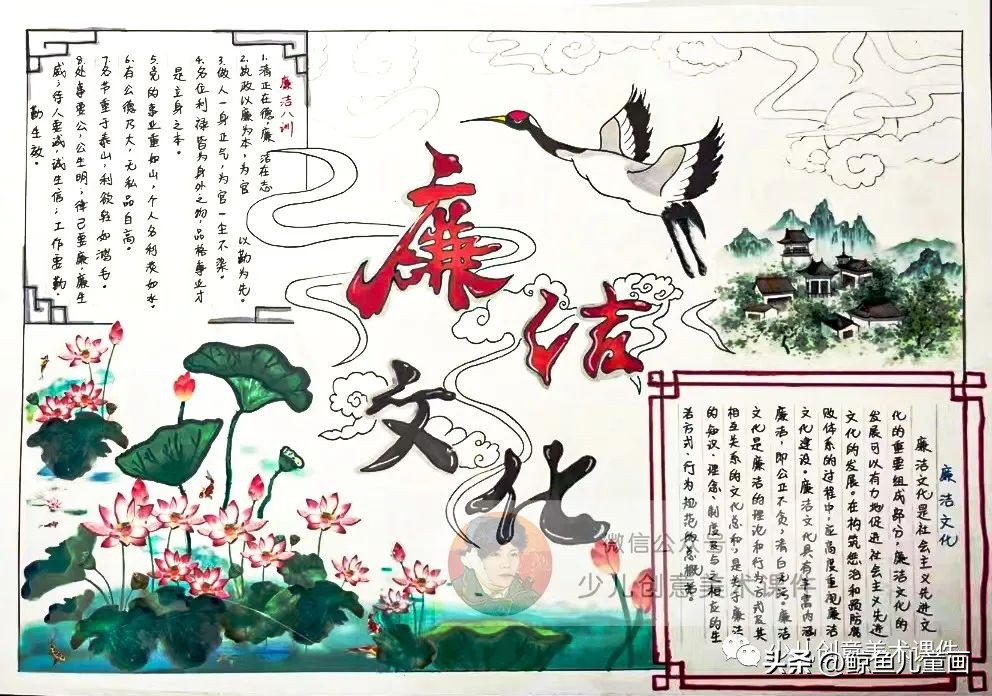 廉洁八训
1.清正在德,廉洁在志
2.执政以廉为本,为官 以勤为先。
3.做人一身正气,为官一生不染。
4.名位利禄皆为身外之物,品格事业才
是立身之本。
5.党的事业重如山,个人名利淡如水。
6.有公德乃大,无私品自高。
7.名节重于泰山,利欲轻如鸿毛。
8.处事要公,公生明;律己要廉,廉生
威;待人要诚,诚生信;工作要勤,
勤生效。
廉洁
文化
廉洁文化
廉洁文化是社会主义先进文
化的重要组成部分,廉洁文化的
发展可以有力地促进社会主义先进
文化的发展。在构筑惩治和预防腐
败体系的过程中,应高度重视廉洁
文化建设。廉洁文化具有丰富内涵,
廉洁,即公正不贪,清白无污。廉洁
文化是廉洁的理论和行为方式及其
相互关系的文化总和,是关于廉洁
的知识、理念、制度及与之相应的生
活方式、行为规范的总概
微信公众号
少儿创意美术课件
少儿创意美术课件
头条@鲸鱼儿童画